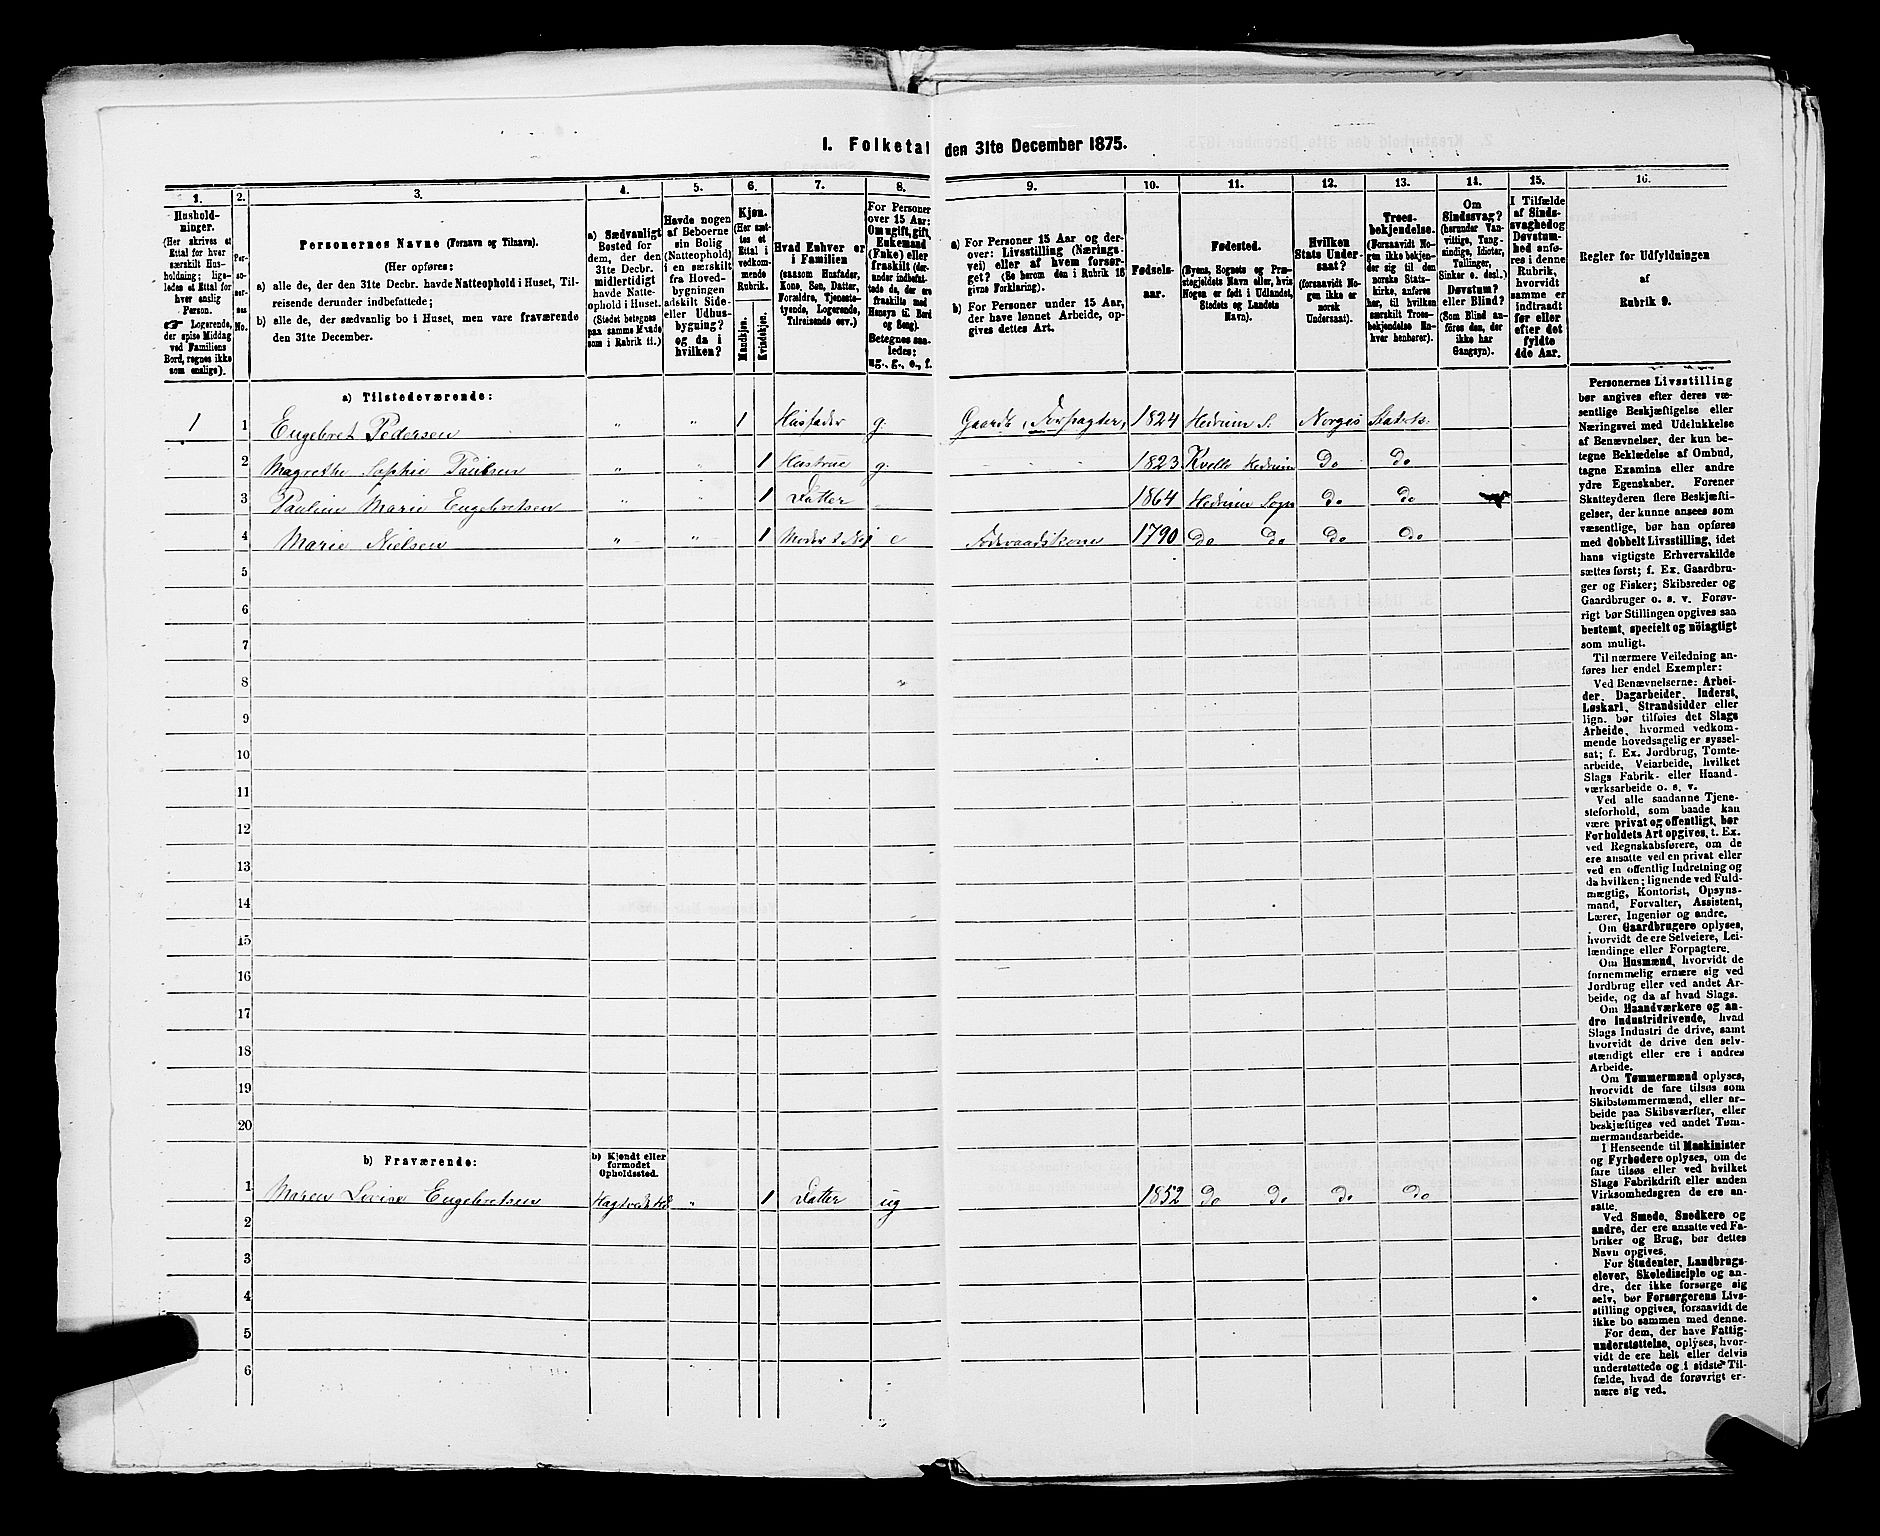 I. Folketal den 31te December 1875.
1. 2. 3. 4. 5. 6. 7. 8. 9. 10. 11. 12. 13. 14. 15. 16.
Hushold-
ninger.
(Her skrives et
Ettal for hver
særskilt Hus-
holdning; lige-
ledes et Ettal for
hver enslig
Person.
☞ Logerende,
der spise Middag
ved Familiens
Bord, regnes ikke
som enslige).
Per-
so-
ner-
nes
No.
Personernes Navne (Fornavn og Tilnavn).
(Her opføres:
a) alle de, der den 31te Decbr. havde Natteophold i Huset, Til-
reisende derunder indbefattede;
b) alle de, der sædvanlig bo i Huset, men vare fraværende
den 31te December.
a) Sædvanligt
Bosted for
dem, der den
31te Decbr.
midlertidigt
havde Natte-
ophold i Huset.
(Stedet betegnes
paa samme Maade
som i Rubrik 11.)
Havde nogen
af Beboerne
sin Bolig
(Natteophold)
i en særskilt
fra Hoved-
bygningen
adskilt Side-
eller Udhus-
bygning?
og da i
hvilken?
Kjøn.
(Her sæt-
tes et
Ettal i
vedkom-
mende
Rubrik.
Mandkjøn.
Kvindekjøn.
Hvad Enhver er
i Familien
(saasom Husfader,
Kone, Søn, Datter,
Forældre, Tjeneste-
tyende, Logerende,
Tilreisende osv.)
For Personer
over 15 Aar:
Om ugift, gift,
Enkemand
(Enke) eller
fraskilt (der-
under indbefat-
tede de, der ere
fraskilte med
Hensyn til Bord
og Seng).
Betegnes saa-
ledes:
ug., g., e., f.
a) For Personer 15 Aar og der-
over: Livsstilling (Nærings-
vei) eller af hvem forsør-
get? (Se herom den i Rubrik 16
givne Forklaring).
b) For Personer under 15 Aar,
der have lønnet Arbeide, op-
gives dettes Art.
Fødsels-
aar.
Fødested.
(Byens, Sognets og Præ-
stegjeldets Navn eller, hvis
Nogen er født i Udlandet,
Stedets og Landets
Navn).
Hvilken
Stats Under-
saat?
(forsaavidt No-
gen ikke er
norsk
Undersaat).
Troes-
bekjendelse.
(Forsaavidt No-
gen ikke bekjen-
der sig til den
norske Stats-
kirke, anføres
her, til hvilken
særskilt Troes-
bekjendelse En-
hver henhører).
Om
Sindssvag?
(herunder Van-
vittige, Tung-
sindige, Idioter,
Tullinger,
Sinker o. desl.)
Døvstum?
eller Blind?
(Som Blind an-
føres den, der
ikke har
Gangsyn).
I Tilfælde
af Sinds-
svaghed og
Døvstum-
hed anfø-
res i denne
Rubrik,
hvorvidt
samme er
indtraadt
før eller
efter det
fyldte
4de Aar.
Regler for Udfyldningen
af
Rubrik 9.
a) Tilstedeværende:
1 1 Engebret Pedersen " " 1 Husfader g. Gaardb. Forpagter, 1824 Hedrum S. Norges Statsk.
2 Magrethe Sophie Paulsen " " 1 Hustrue g. 1823 Kvelle Hedrum Do Do
3 Pauline Marie Engebretsen " " 1 Datter 1864 Hedrum Sogn Do Do
4 Marie Nielsen " " 1 Moder e Føderaadskone 1790 Do Do Do Do
5
6
7
8
9
10
11
12
13
14
15
16
17
18
19
20
b) Fraværende:
b) Kjendt eller
formodet
Opholdssted.
1 Maren Lovise Engebretsen " 1 Datter ug 1852 Do Do Do Do
2
3
4
5
6
Personernes Livsstilling
bør angives efter deres væ-
sentlige Beskjæftigelse eller
Næringsvei med Udelukkelse
af Benævnelser, der kun be-
tegne Beklædelse af Ombud,
tagne Examina eller andre
ydre Egenskaber. Forener
Skatteyderen flere Beskjæfti-
gelser, der kunne ansees som
væsentlige, bør han opføres
med dobbelt Livsstilling, idet
hans vigtigste Erhvervskilde
sættes først; f. Ex. Gaardbru-
ger og Fisker; Skibsreder og
Gaardbruger o. s. v. Forøv-
rigt bør Stillingen opgives saa
bestemt, specielt og nöiagtigt
som muligt.
Til nærmere Veiledning an-
føres her endel Exempler:
Ved Benævnelserne: Arbei-
der, Dagarbeider, Inderst,
Løskarl, Strandsidder eller
lign. bør tilføies det Slags
Arbeide, hvormed vedkom-
mende hovedsagelig er syssel-
sat; f. Ex. Jordbrug, Tomte-
arbeide, Veiarbeide, hvilket
Slags Fabrik- eller Haand-
værksarbeide o. s. v.
Ved alle saadanne Tjene-
steforhold, som baade kan
være privat og offentligt, bør
Forholdets Art opgives, t. Ex.
ved Regnskabsførere, om de
ere ansatte ved en privat eller
ved en offentlig Indretning og
da hvilken; lignende ved Fuld-
mægtig, Kontorist, Opsyns-
mand, Forvalter, Assistent,
Lærer, Ingeniør og andre.
Om Gaardbrugere oplyses,
hvorvidt de ere Selveiere, Lei-
lændinge eller Forpagtere.
Om Husmænd, hvorvidt de
fornemmelig ernære sig ved
Jordbrug eller ved andet Ar-
beide, og da af hvad Slags.
Om Haandværkere og an-
dre Industridrivende, hvad
Slags Industri de drive, samt
hvorvidt de drive den selv-
stændigt eller ere i andres
Arbeide.
Om Tømmermænd oplyses,
hvorvidt de fare tilsøs som
Skibstømmermænd, eller ar-
beide paa Skibsværfter, eller
beskjæftiges ved andet Tøm-
mermandsarbeide.
I Henseende til Maskinister
og Fyrbødere oplyses, om de
fare tilsøs eller ved hvilket
Slags Fabrikdrift eller anden
Virksomhedsgren de ere an-
satte.
Ved Smede, Snedkere og
andre, der ere ansatte ved Fa-
briker og Brug, bør dettes
Navn opgives.
For Studenter, Landbrugs-
elever, Skoledisciple og an-
dre, der ikke forsørge sig
selv, bør Forsørgerens Livs-
stilling opgives, forsaavidt de
ikke bo sammen med denne.
For dem, der have Fattig-
understøttelse, oplyses, hvor-
vidt de ere helt eller delvis
understøttede og i sidste Til-
fælde, hvad de forøvrigt er-
nære sig ved.